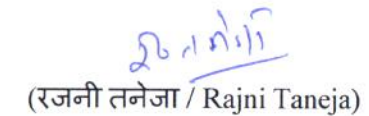 (रजनी तनेजा / Rajni Taneja)